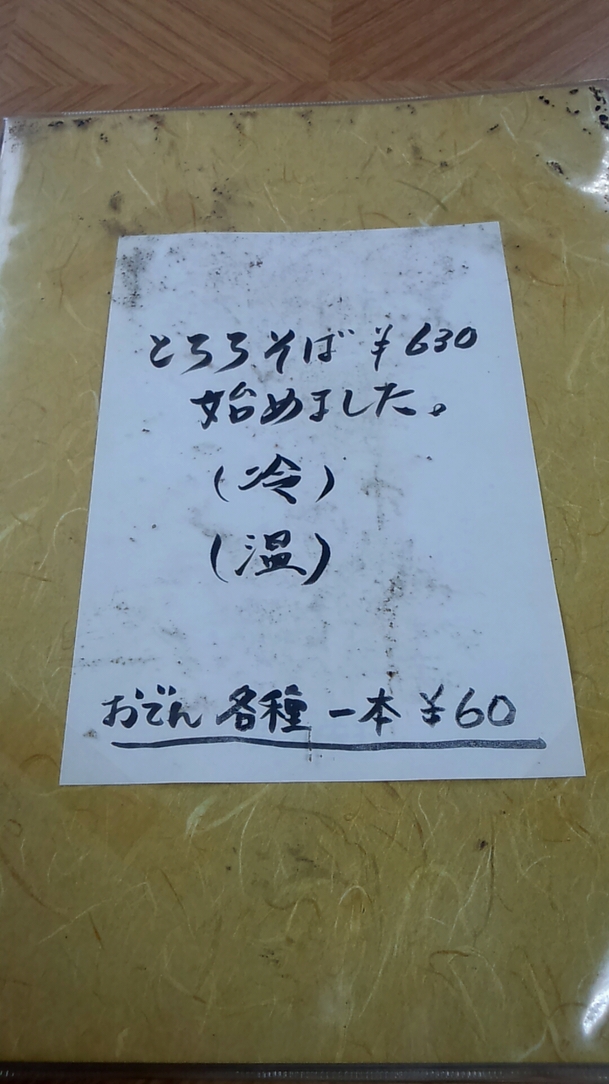 とろろそば ¥630
始めました。
(冷)
(温)
おでん 各種 一本 ¥60